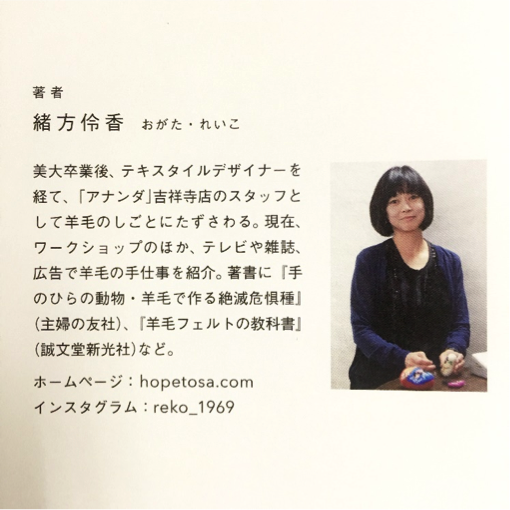 著者
緒方伶香 おがた・れいこ
美大卒業後、テキスタイルデザイナーを
経て、「アナンダ」吉祥寺店のスタッフと
して羊毛のしごとにたずさわる。現在、
ワークショップのほか、テレビや雑誌、
広告で羊毛の手仕事を紹介。著書に『手
のひらの動物・羊毛で作る絶滅危惧種』
（主婦の友社）、『羊毛フェルトの教科書』
（誠文堂新光社）など。
ホームページ：hopetosa.com
インスタグラム：reko_1969